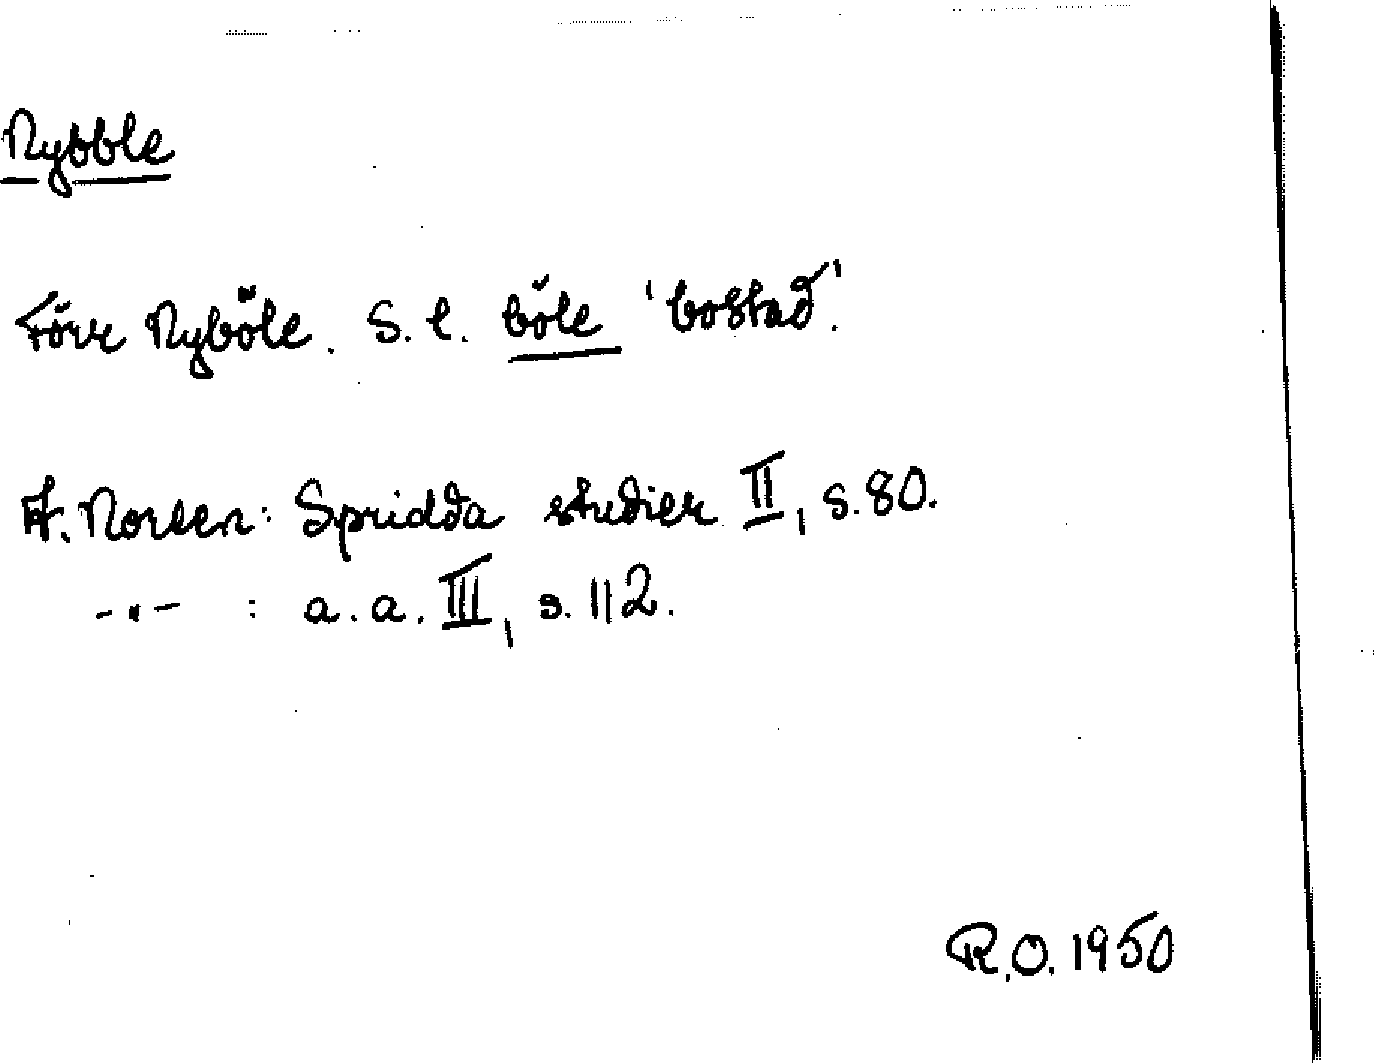 Nybble
Förr Nyböle. S. l. böle 'bostad'.
A. Noreen: Spridda studier II, s. 80.
-"- : a. a. III, s. 112.
R.O. 1950